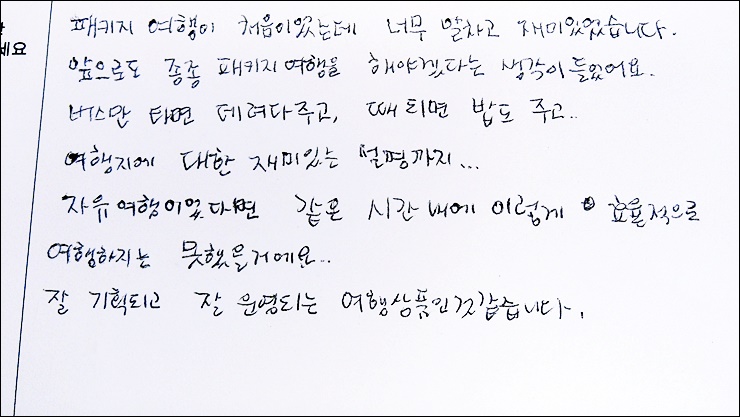 세요
패키지 여행이 처음이었는데 너무 알차고 재미있었습니다.
앞으로도 종종 패키지여행을 해야겠다는 생각이 들었어요.
버스만 타면 데려다주고, 때 되면 밥도 주고..
여행지에 대한 재미있는 설명까지...
자유여행이었다면 같은 시간 내에 이렇게 효율적으로
여행하지는 못했을거에요..
잘 기획되고 잘 운영되는 여행상품인것같습니다.